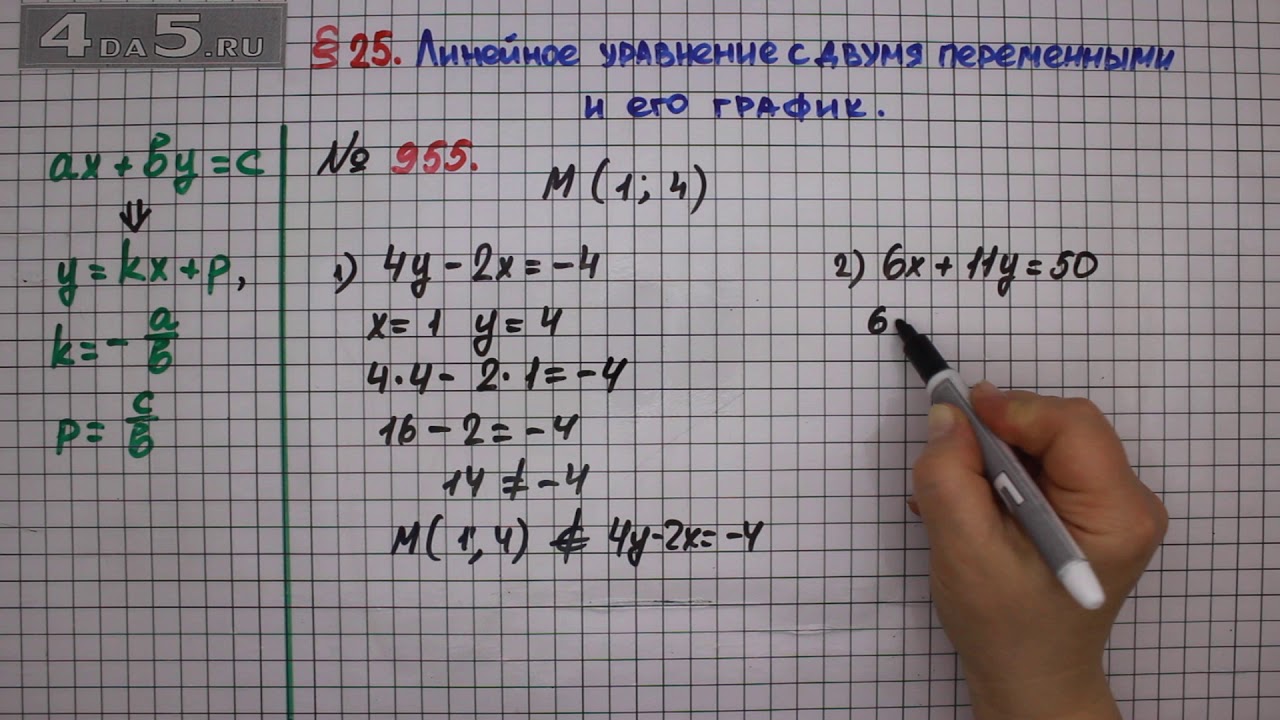 4DA5.RU
§ 25. Линейное уравнение с двумя переменными
и его график.
ax + by = c
⇓
y = kx + p,
k = - a/b
p = c/b
№ 955.
M (1; 4)
1) 4y - 2x = -4
x = 1 y = 4
4·4 - 2·1 = -4
16 - 2 = -4
14 ≠ -4
M (1; 4) ∉ 4y-2x= -4
2) 6x + 11y = 50
6